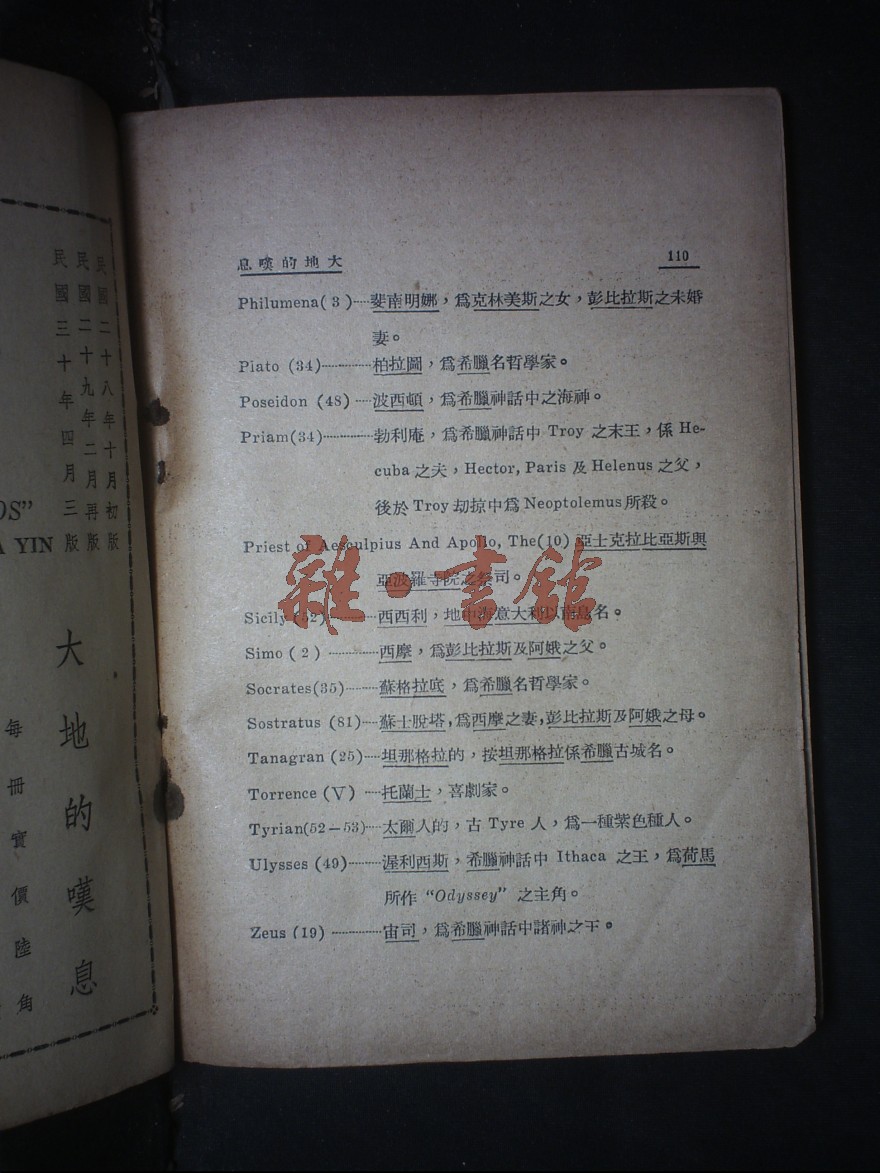 息嘆的地大 110
Philumena(3)┈斐南明娜，爲克林美斯之女，彭比拉斯之未婚
妻。
Plato (34)┈柏拉圖，爲希臘名哲學家。
Poseidon (48)┈波西頓，爲希臘神話中之海神。
Priam(34)┈勃利庵，爲希臘神話中 Troy 之末王，係 He-
cuba 之夫，Hector, Paris 及 Helenus 之父，
後於 Troy 劫掠中爲 Neoptolemus 所殺。
Priest of Aesculpius And Apollo, The(10) 亞士克拉比亞斯與
亞波羅寺院之祭司。
Sicily (32)┈西西利，地中海意大利以南島名。
Simo (2)┈西摩，爲彭比拉斯及阿娥之父。
Socrates(35)┈蘇格拉底，爲希臘名哲學家。
Sostratus (81)┈蘇士脫塔，爲西摩之妻，彭比拉斯及阿娥之母。
Tanagran (25)┈坦那格拉的，按坦那格拉係希臘古城名。
Torrence (V)┈托蘭士，喜劇家。
Tyrian(52—53)┈太爾人的，古 Tyre 人，爲一種紫色種人。
Ulysses (49)┈渥利西斯，希臘神話中 Ithaca 之王，爲荷馬
所作 “Odyssey” 之主角。
Zeus (19)┈宙司，爲希臘神話中諸神之王。
雜·書館
民國二十八年十月初版
民國二十九年二月再版
民國三十年四月三版
OS”
YIN
大地的嘆息
每冊實價陸角